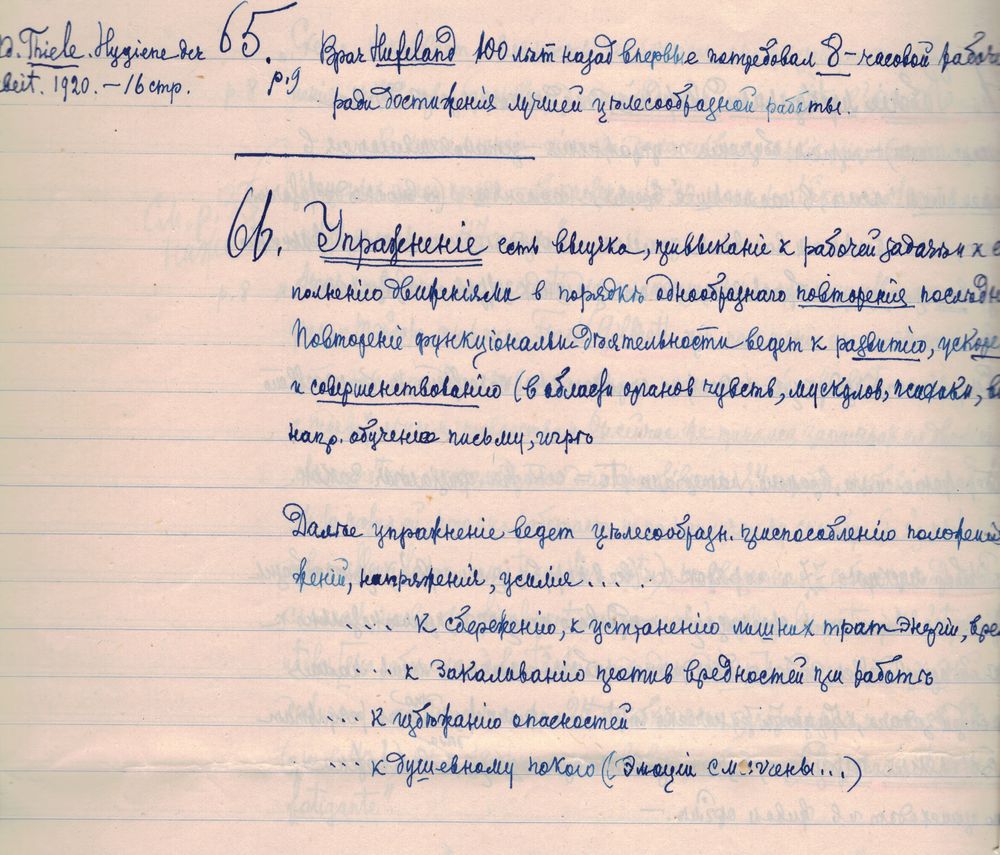 D. Thiele. Hygiene der
beit. 1920. – 16 стр.
65.
p. 9
Врач Hufeland 100 лѣт назад впервые потребовал 8-часовой рабоче
ради достиженія лучшей цѣлесообразной работы.
66. Упражненіе есть выучка, привыканіе к рабочей задачѣ и к
полненію движеніями в порядкѣ однообразнаго повторенія послѣдн
Повтореніе функціональн. дѣятельности ведет к развитію, ускоре
и совершенствованію (в области органов чувств, мускулов, психики,
напр. обученіе письму, игрѣ
Далѣе упражненіе ведет цѣлесообразн. приспособленію положені
женій, напряженія, усилія . . . .
.... к сбереженію, к устраненію лишних трат энергіи, вре
... к закаливанію против вредностей при работѣ
... к избѣжанію опасностей
... к душевному покою (Эмоціи смягчены...)